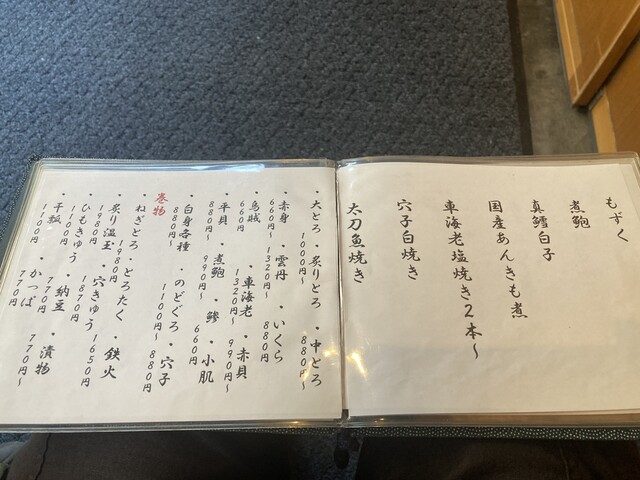 もずく
煮鮑
真鱈白子
国産あんきも煮
車海老塩焼き2本〜
穴子白焼き
太刀魚焼き
・大とろ ・炙りとろ ・中とろ
1000円〜 880円〜
・赤身 ・雲丹 ・いくら
660円〜 1320円〜 880円
・烏賊 ・車海老 ・赤貝
660円 1320円〜 990円〜
・平貝 ・煮鮑 ・鯵 ・小肌
880円〜 990円〜 660円
・白身各種 ・のどぐろ ・穴子
880円〜 1100円〜 880円
巻物
・ねぎとろ ・とろたく ・鉄火
1980円〜
・炙り温玉 ・穴きゅう
1980円 1650円
・ひもきゅう ・納豆 ・漬物
1100円 1870円 770円 770円〜
・干瓢 ・かっぱ
1100円 770円